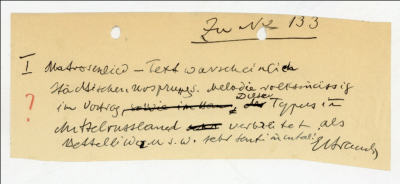 Zu Nr 133
I Matrosenlied – Text warscheinlich
städtischen Ursprungs. Melodie volkstümlich
? im Vortrag, Dieser Typus in
Mittelrussland verbreitet als
Bettellied u.s.w. sehr sentimental.